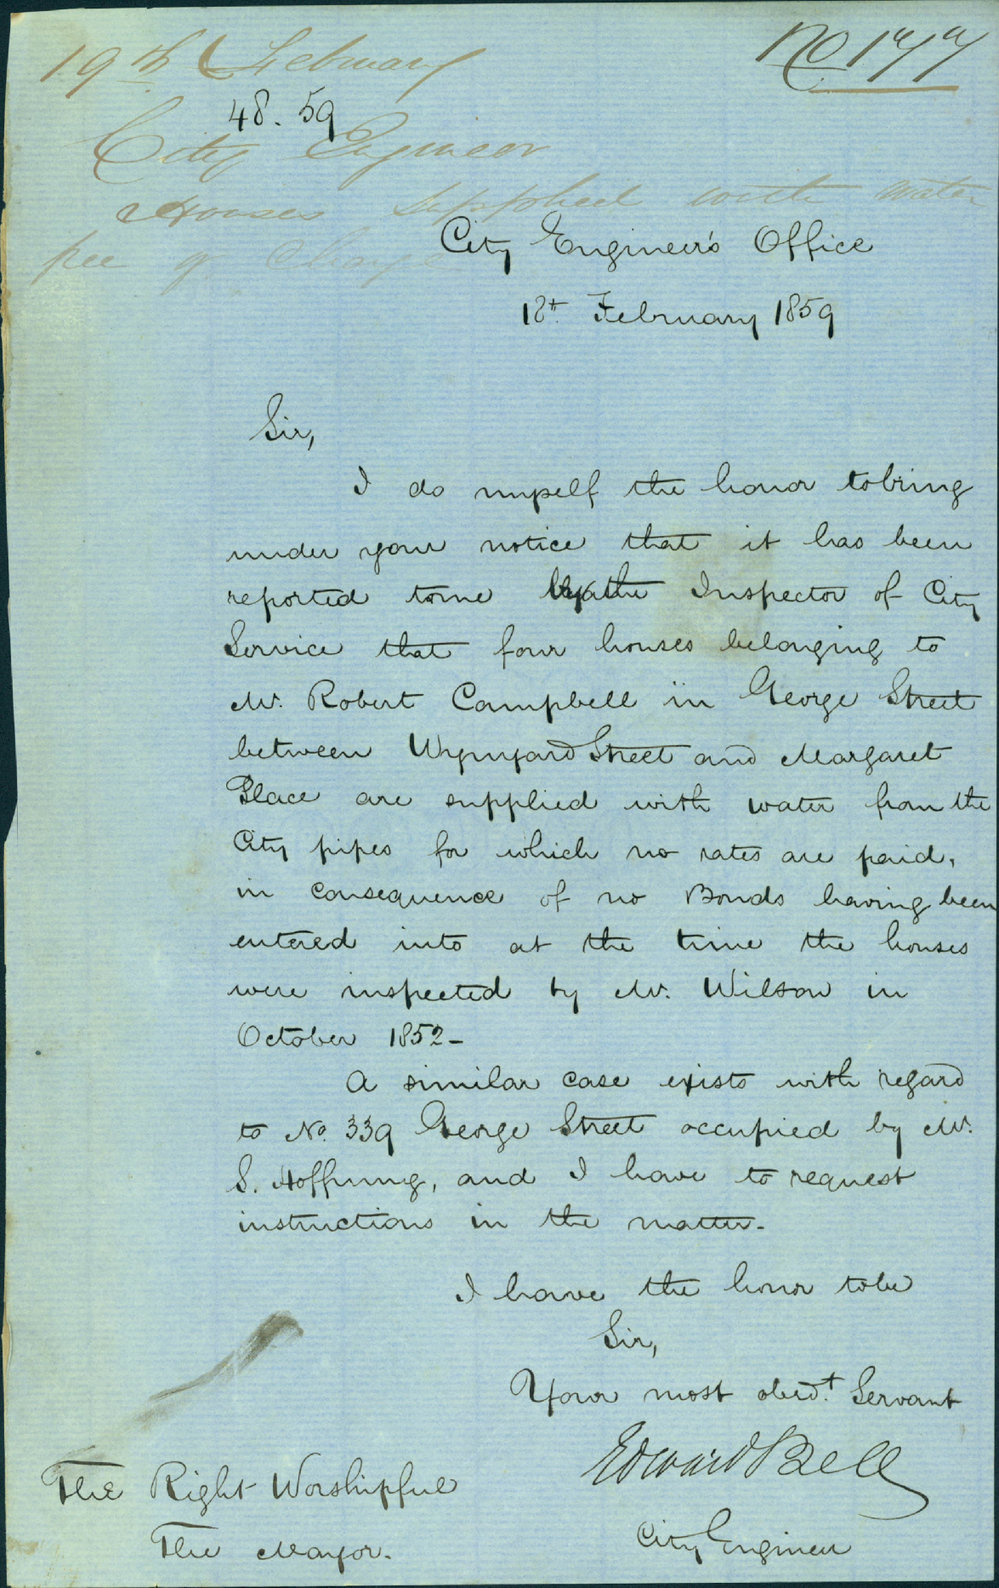 19th February
No 177
48. 59
City Engineer
Houses supplied with water
free of Charge
City Engineer's Office
18th February 1859
Sir,
I do myself the honor to bring
under your notice that it has been
reported to me by the Inspector of City
Service that four houses belonging to
Mr. Robert Campbell in George Street
between Wynyard Street and Margaret
Place are supplied with water from the
City pipes for which no rates are paid,
in consequence of no Bonds having been
entered into at the time the houses
were inspected by Mr. Wilson in
October 1852 -
A similar case exists with regard
to No. 339 George Street occupied by Mr.
S. Hoffnung, and I have to request
instructions in the matter -
I have the honor to be
Sir,
Your most obedt. Servant
Edward Bell
City Engineer
The Right Worshipful
The Mayor.